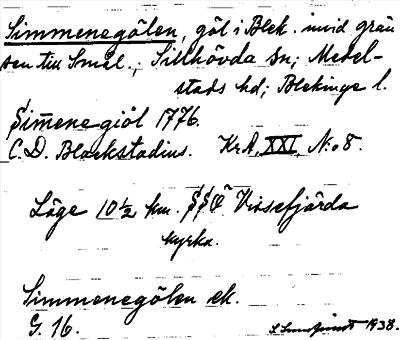 Simmenegölen, göl i Blek. invid grän
sen till Smål.; Sillhövda sn; Medel-
stads hd; Blekinge l.
Sim̅enegiöl 1776.
C. D. Blackstadius. KrA, XXI, N:o 8.
Läge 10½ km. SSO Vissefjärda
kyrka.
Simmenegölen ek.
G. 16.
1938.